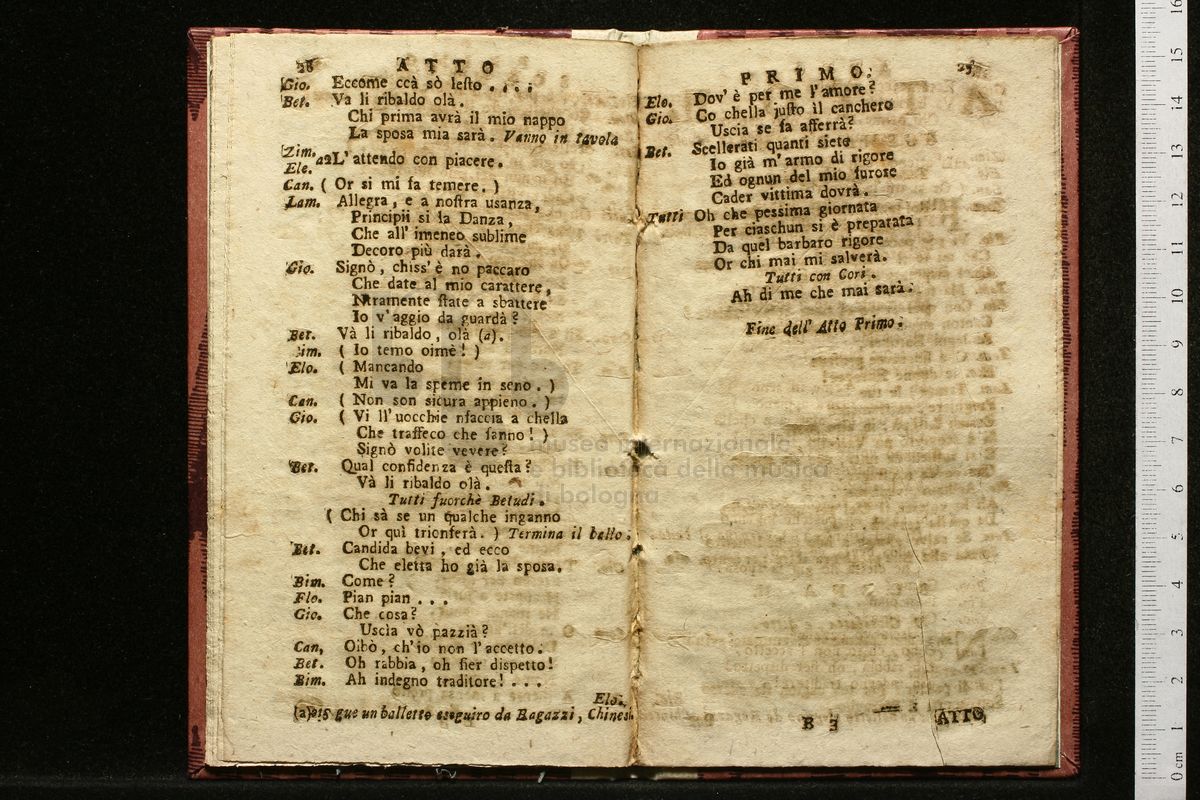 28 ATTO
Gio. Eccome ccà sò lesto . . . .
Bet. Va li ribaldo olà.
Chi prima avrà il mio nappo
La sposa mia sarà. Vanno in tavola
Zim.
Ele. a2 L' attendo con piacere.
Can. ( Or si mi fa temere. )
Lam. Allegra, e a nostra usanza,
Principii si la Danza,
Che all' imeneo sublime
Decoro più darà.
Gio. Signò, chiss' è no paccaro
Che date al mio carattere,
Ntramente state a sbattere
Io v' aggio da guardà?
Bet. Và li ribaldo, olà (a).
Bim. ( Io temo oimè! )
Elo. ( Mancando
Mi va la speme in seno. )
Can. ( Non son sicura appieno. )
Gio. ( Vi ll' uocchie nfaccia a chella
Che traffeco che fanno! )
Signò volite vevere?
Bet. Qual confidenza è questa?
Và li ribaldo olà.
Tutti fuorchè Betudì.
( Chi sà se un qualche inganno
Or qui trionferà. ) Termina il ballo.
Bet. Candida bevi, ed ecco
Che eletta ho già la sposa.
Bim. Come?
Flo. Pian pian . . .
Gio. Che cosa?
Uscìa vò pazzià?
Can, Oibò, ch'io non l'accetto.
Bet. Oh rabbia, oh fier dispetto!
Bim. Ah indegno traditore! . . .
Elo.
(a) gue un balletto eseguiro da Ragazzi, Chinesi
PRIMO.
Elo. Dov' è per me l'amore?
Gio. Co chella justo il canchero
Uscia se fa afferrà?
Bet. Scellerati quanti siete
Io già m'armo di rigore
Ed ognun del mio furore
Cader vittima dovrà.
Tutti Oh che pessima giornata
Per ciaschun si è preparata
Da quel barbaro rigore
Or chi mai mi salverà.
Tutti con Cori.
Ah di me che mai sarà.
Fine dell' Atto Primo.
B 3 ATTO
museo internazionale
e biblioteca della musica
di bologna
0 cm 1 2 3 4 5 6 7 8 9 10 11 12 13 14 15 16